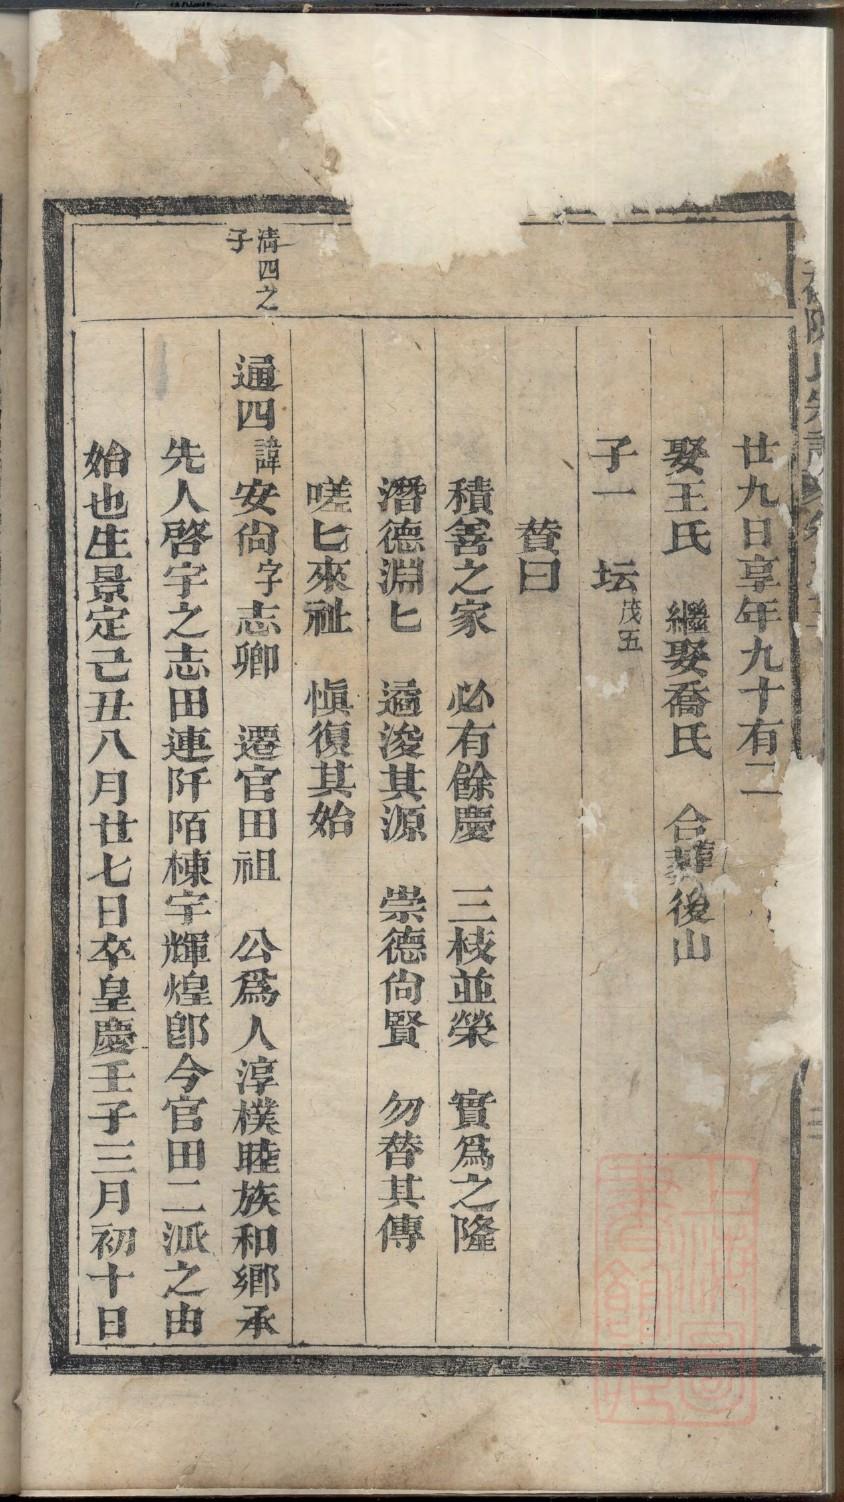 陳氏宗譜
廿九日享年九十有二
娶王氏　繼娶喬氏　合葬後山
子一　坛茂五
贊曰
積善之家　必有餘慶　三枝並榮　實爲之隆
潛德淵匕　遹浚其源　崇德尙賢　勿替其傳
嗟匕來祉　愼復其始
清四之子
通四諱安尙字志卿　遷官田祖　公爲人淳樸睦族和鄉承
先人啓宇之志田連阡陌棟宇輝煌卽今官田二派之由
始也生景定己丑八月廿七日卒皇慶壬子三月初十日